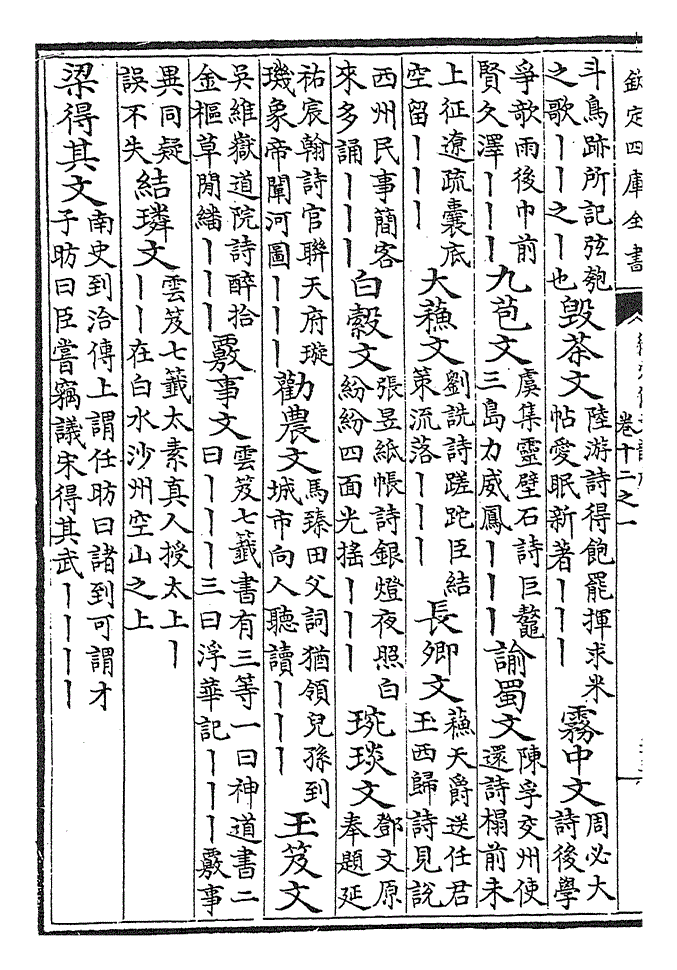 欽定四庫全書
卷十二之一
斗鳥跡所記弦匏之歌丨丨之丨也 毁茶文 陸游詩得飽罷揮求米帖愛眠新著丨丨丨 霧中文 周必大詩後學
爭欹雨後巾前賢久澤丨丨丨 九苞文 虞集靈壁石詩巨鼇三島力威鳳丨丨丨 諭蜀文 陳孚交州使還詩榻前未
上征遼疏囊底空留丨丨丨 大蘓文 劉詵詩蹉跎臣結策流落丨丨丨 長卿文 蘓天爵送任君玉西歸詩見說
西州民事簡客來多誦丨丨丨 白縠文 張昱紙帳詩銀燈夜照白紛紛四面光搖丨丨丨 琬琰文 鄧文原奉題延
祐宸翰詩官聯天府璇璣象帝闡河圖丨丨丨 勸農文 馬臻田父詞猶領兒孫到城市向人聽讀丨丨丨 玉笈文
吳維嶽道院詩醉拾金樞草閒繙丨丨丨 覈事文 雲笈七籤書有三等一曰神道書二曰丨丨丨三曰浮華記丨丨丨覈事
異同疑誤不失 結璘文 雲笈七籤太素真人授太上丨丨丨在白水沙州空山之上
梁得其文 南史到洽傳上謂任昉曰諸到可謂才子昉曰臣嘗竊議宋得其武丨丨丨丨